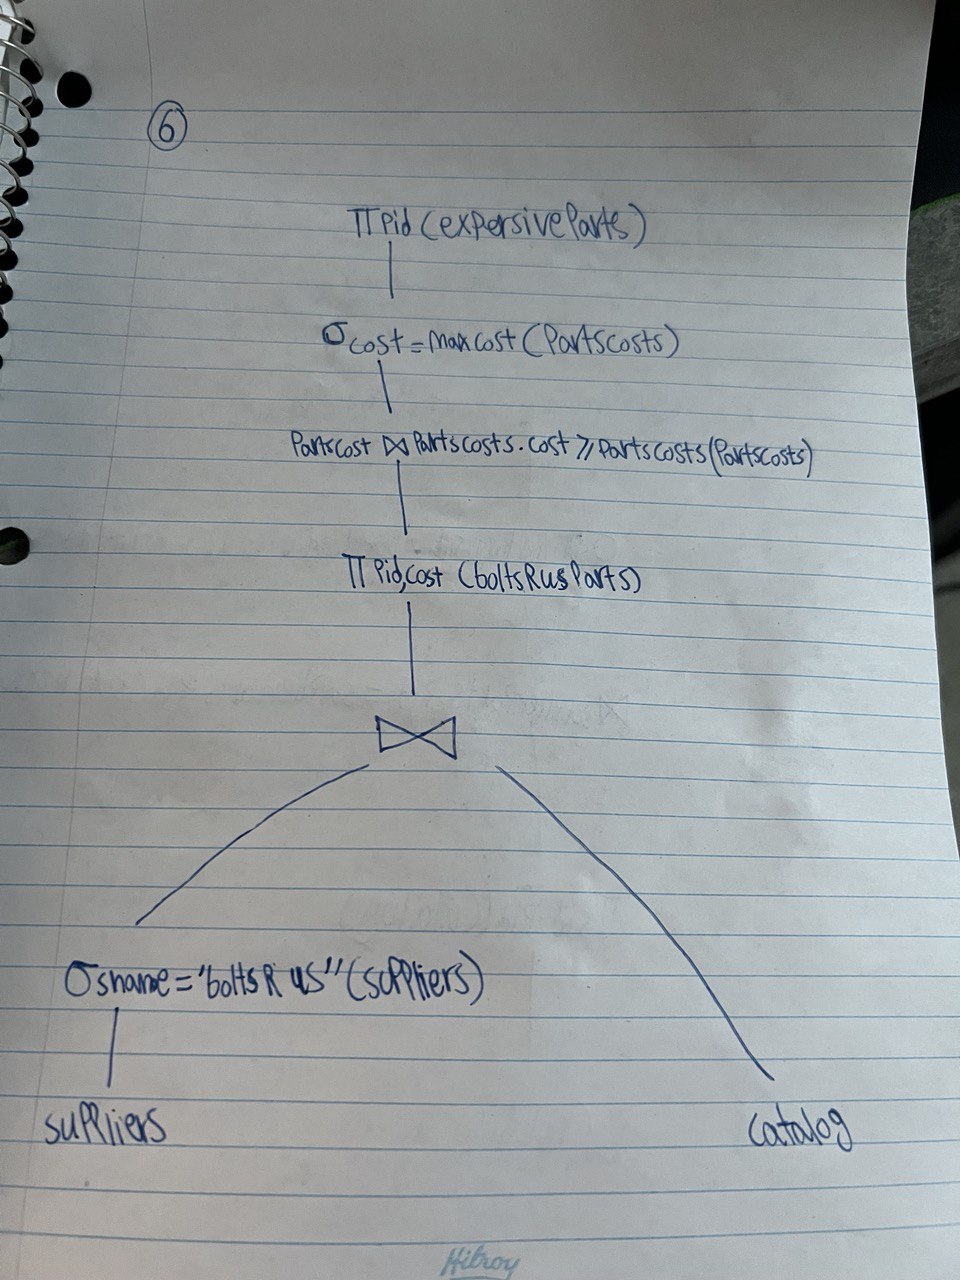 6
π Pid (expersiveParts)
σ cost = maxcost (Partscosts)
Partscost ⋈ Partscosts.cost ≥ Partscosts (Partscosts)
π Pid,cost (boltsRusParts)
⋈
σ sname = "bolts R us" (suppliers)
suppliers
catalog
Hilroy